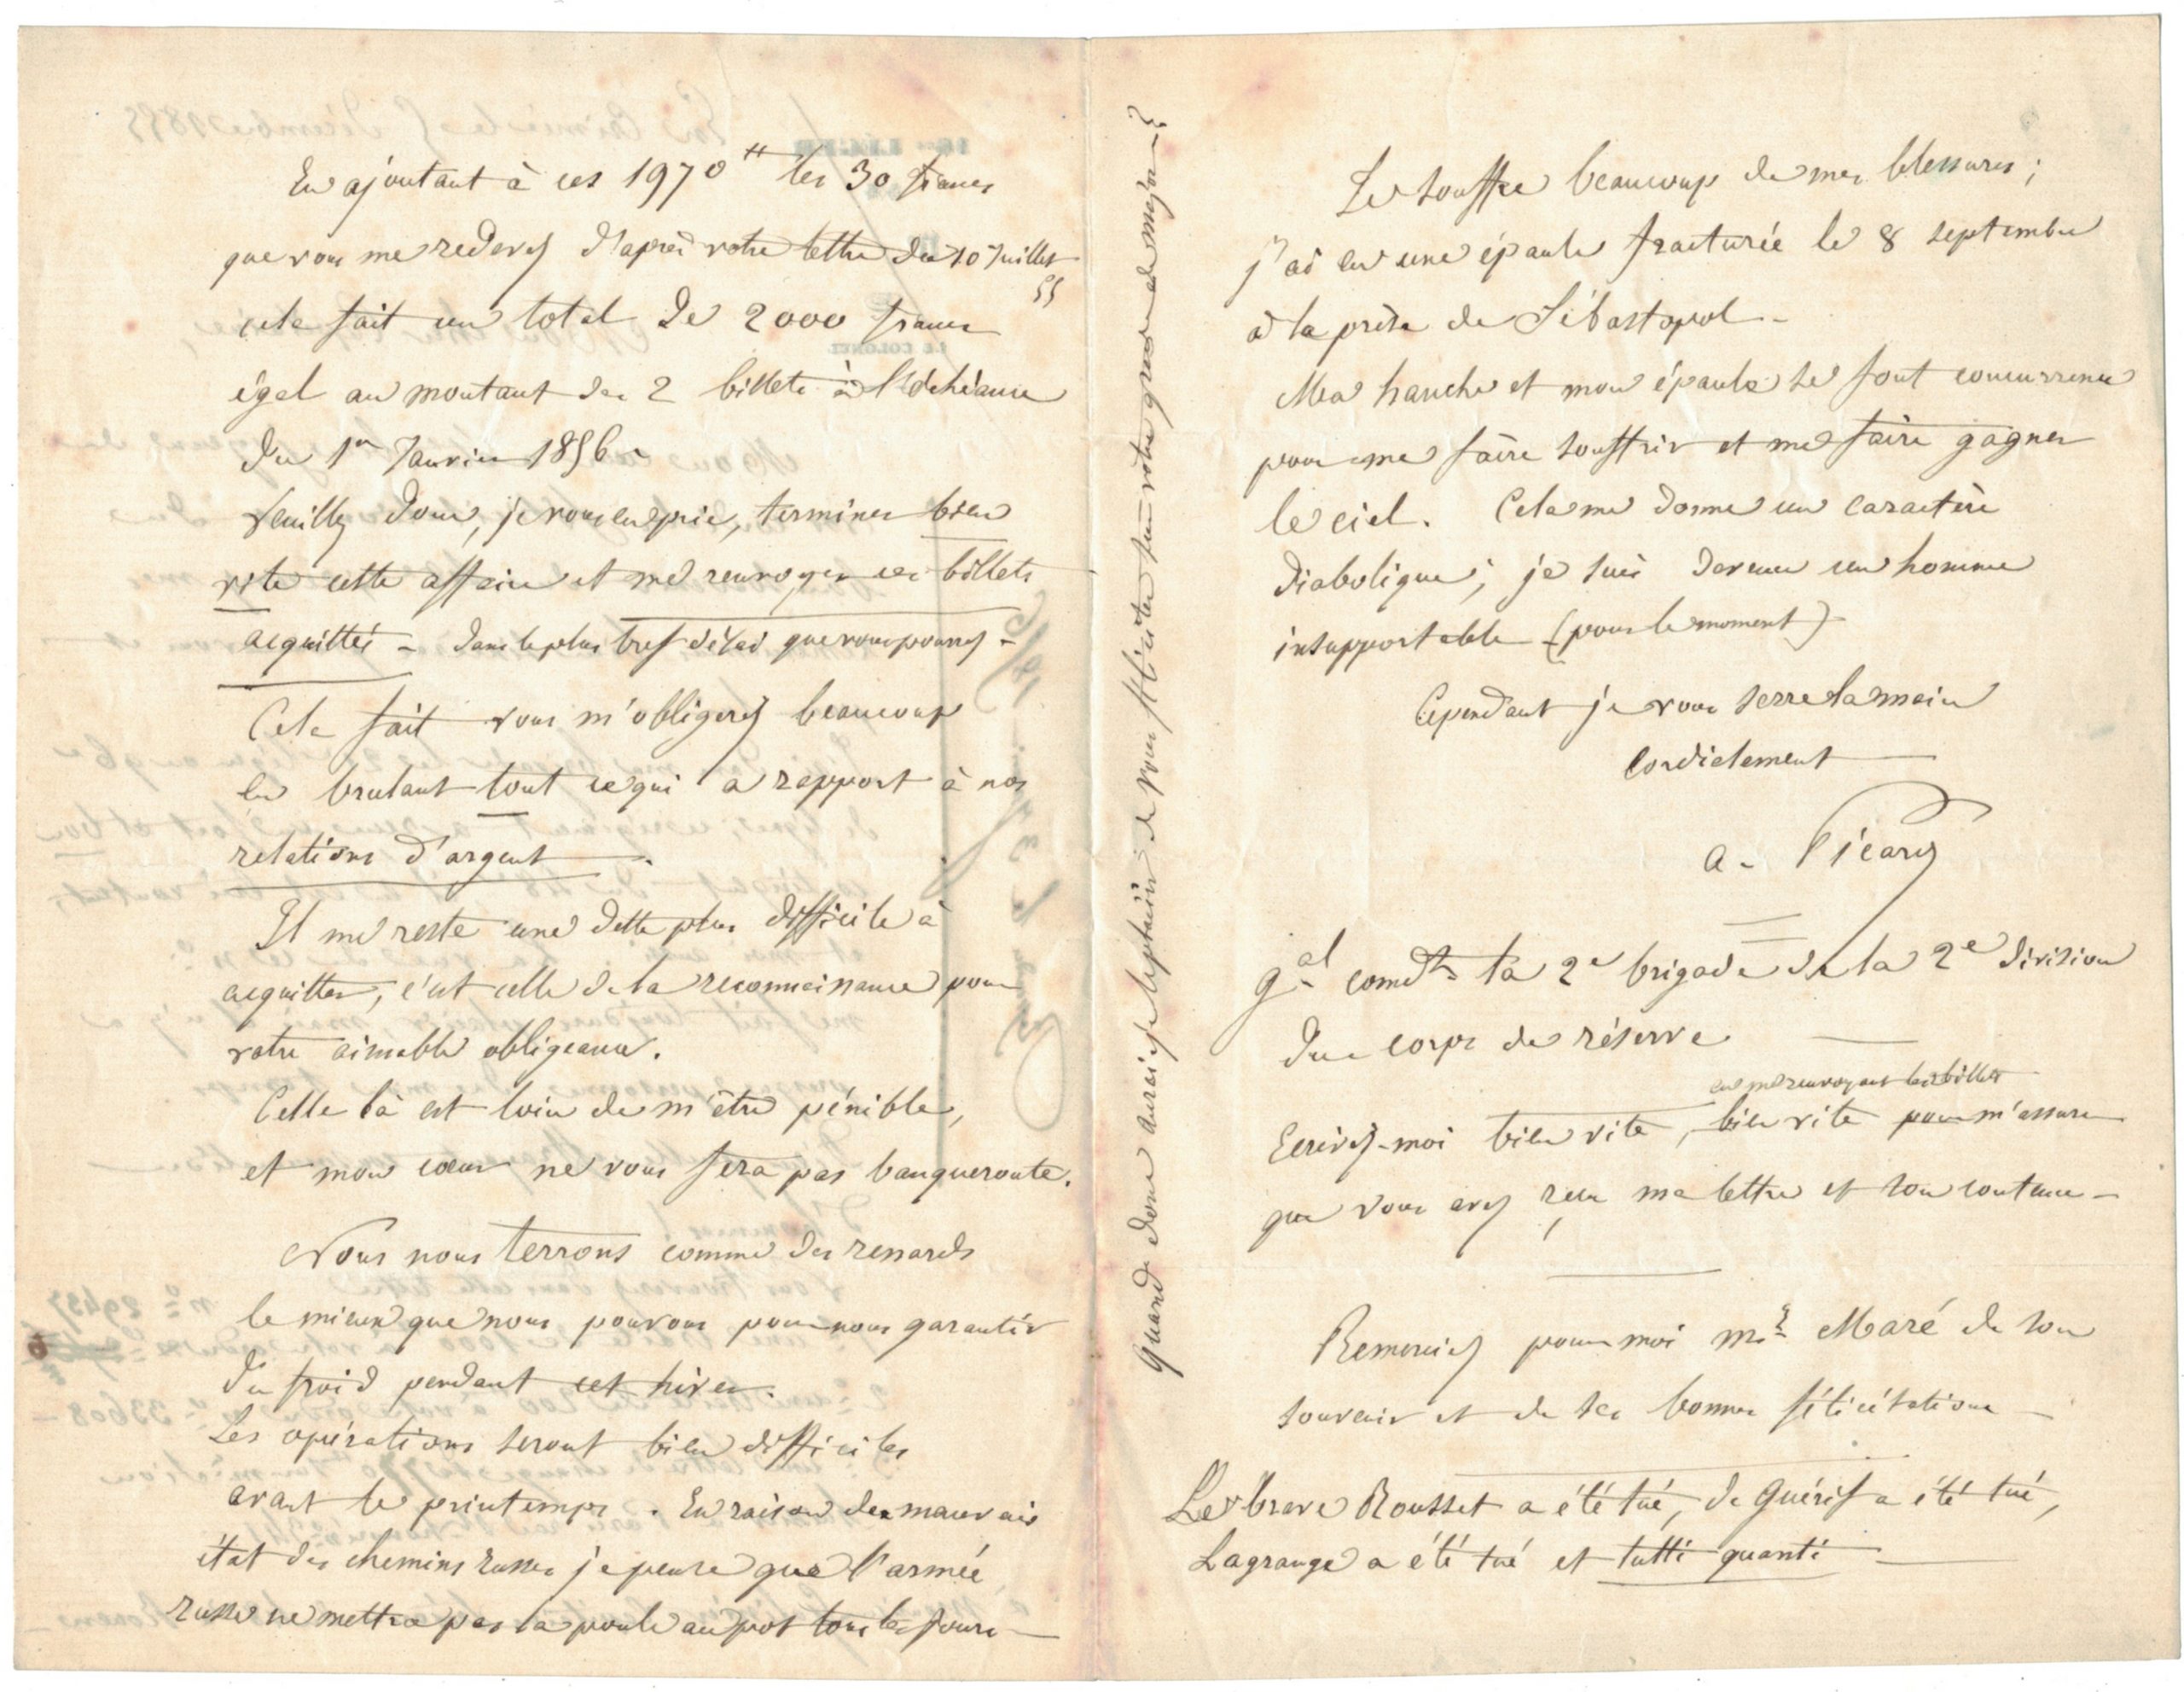 En ajoutant à ces 1970 ᶠᶠ les 30 francs
que vous me redevez d'après votre lettre du 10 Juillet
55
cela fait un total de 2000 francs
égal au montant des 2 billets à l'échéance
du 1er Janvier 1856 -
Veuillez donc, je vous en prie, terminer bien
vite cette affaire et me renvoyer ces billets
acquittés - dans le plus bref délai que vous pourrez -
Cela fait vous m'obligerez beaucoup
en brulant tout ce qui a rapport à nos
relations d'argent.
Il me reste une dette plus difficile à
acquitter, c'est celle de la reconnaissance pour
votre aimable obligeance.
Celle là est loin de m'être pénible,
et mon cœur ne vous fera pas banqueroute.
Nous nous terrons comme des renards
le mieux que nous pouvons pour nous garantir
du froid pendant cet hiver.
Les opérations seront bien difficiles
avant le printemps. En raison du mauvais
état des chemins russes je pense que l'armée
russe ne mettra pas la poule au pot tous les jours -
Quand donc aurai-je la satisfaction de vous féliciter sur votre grade de major ?
Je souffre beaucoup de mes blessures ;
j'ai eu une épaule fracturée le 8 septembre
à la prise de Sébastopol -
Ma hanche et mon épaule se font concurrence
pour me faire souffrir et me faire gagner
le ciel. Cela me donne un caractère
diabolique ; je suis devenu un homme
insupportable (pour le moment)
Cependant je vous serre la main
cordialement
a - Picard
gal comdt la 2e brigade de la 2e division
du corps de réserve
en me renvoyant les billets
Ecrivez-moi bien vite, bien vite pour m'assurer
que vous avez reçu ma lettre et son contenu -
Remerciez pour moi mr Maré de son
souvenir et de ses bonnes félicitations -
Le brave Rousset a été tué, de Guérif a été tué,
Lagrange a été tué et tutti quanti -